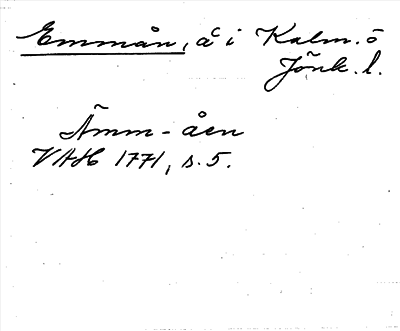 Emmån, å i Kalm. o
Jönk. l.
Ämm-åen
VAH 1771, s. 5.